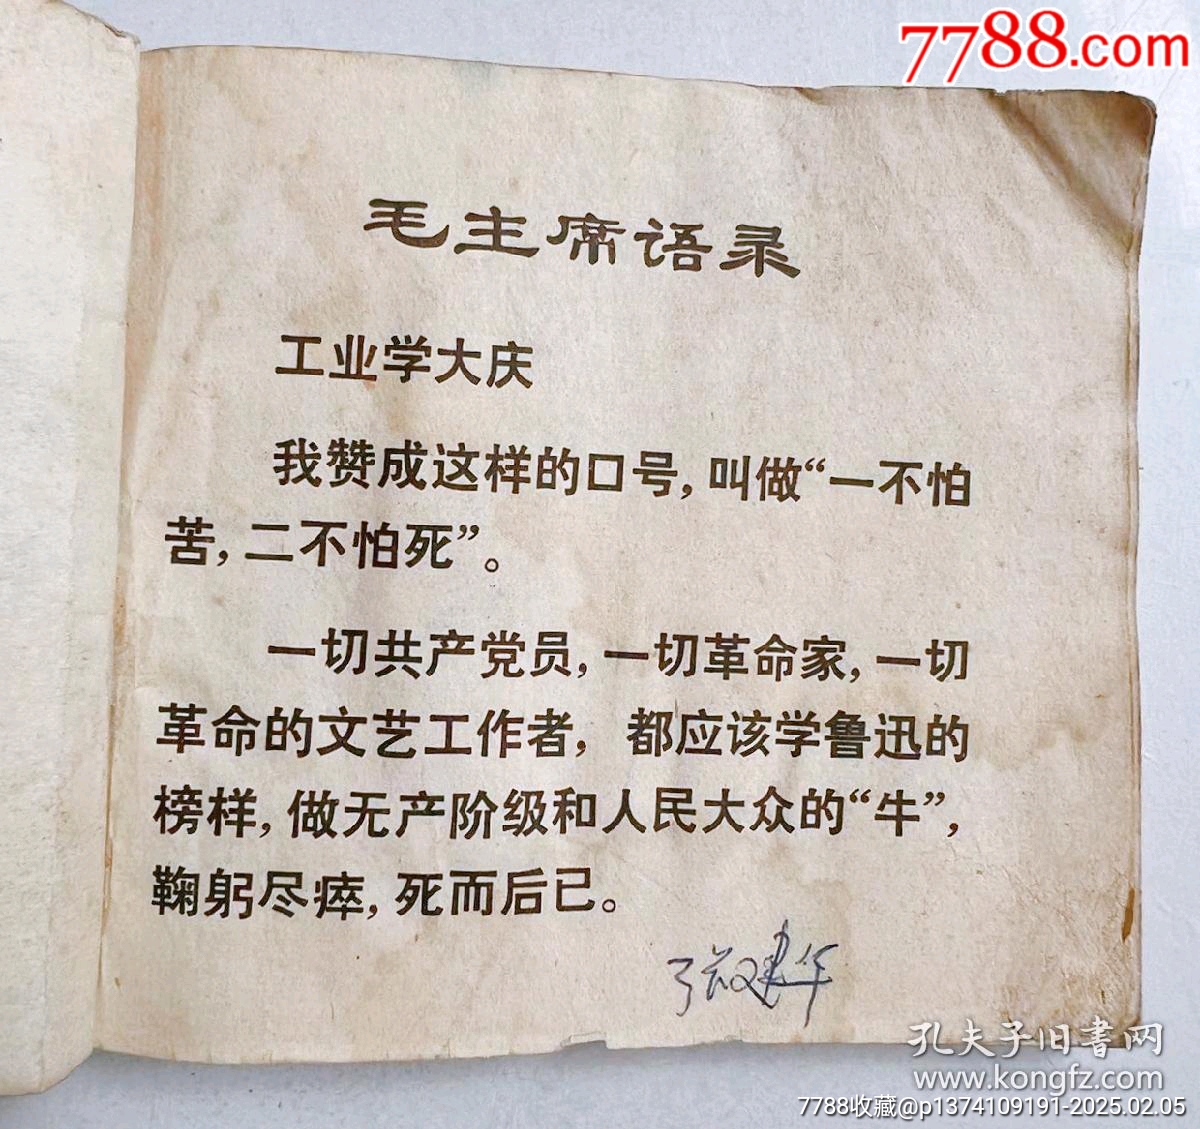 7788.com
毛主席语录
工业学大庆
我赞成这样的口号，叫做“一不怕
苦，二不怕死”。
一切共产党员，一切革命家，一切
革命的文艺工作者，都应该学鲁迅的
榜样，做无产阶级和人民大众的“牛”，
鞠躬尽瘁，死而后已。
张建华
孔夫子旧書网
www.kongfz.com
7788收藏@p1374109191-2025.02.05